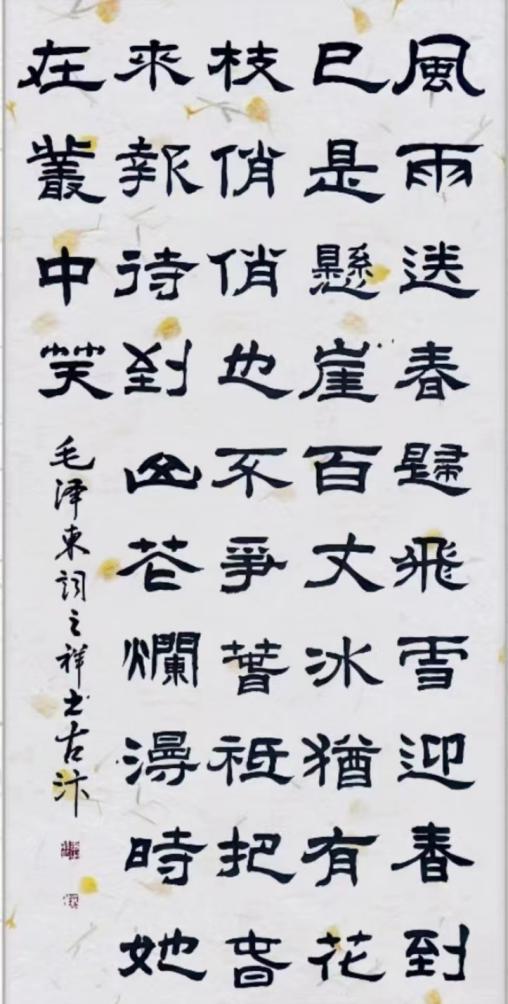 風雨送春歸飛雪迎春到
已是懸崖百丈冰猶有花
枝俏俏也不爭萅祇把旾
來報待到山花爛漫時她
在叢中笑
毛泽東詞之祥书古汴